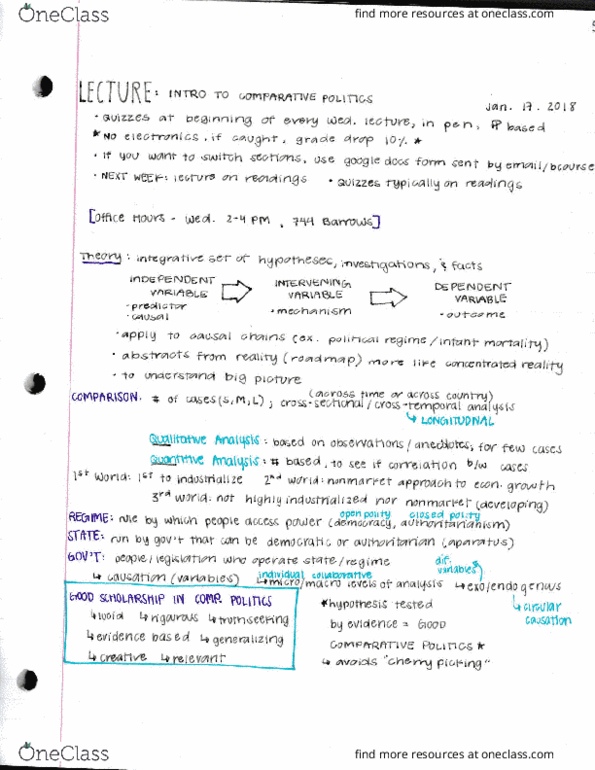 OneClass
find more resources at oneclass.com
LECTURE: INTRO TO COMPARATIVE POLITICS
Jan. 17. 2018
• Quizzes at beginning of every wed. lecture, in pen, based
* No electronics. if caught, grade drop 10% *
• If you want to switch sections, use google docs form sent by email/bcourse
• NEXT WEEK: lecture on readings • Quizzes typically on readings
[Office Hours - Wed. 2-4 PM, 744 Barrows]
Theory: integrative set of hypotheses, investigations, & facts
INDEPENDENT VARIABLE
INTERVENING VARIABLE
DEPENDENT VARIABLE
• predictor
• causal
• mechanism
• outcome
• apply to causal chains (ex. political regime/infant mortality)
• abstracts from reality (roadmap) more like concentrated reality
• to understand big picture
(across time or across country)
COMPARISON: # of cases (S, M, L); cross-sectional/cross-temporal analysis
↳ LONGITUDNAL
Qualitative Analysis: based on observations/anecdotes, for few cases
Quantitive Analysis: # based, to see if correlation b/w cases
1st World: 1st to industrialize 2nd world: nonmarket approach to econ. growth
3rd world: not highly industrialized nor nonmarket (developing)
open polity closed polity
REGIME: rule by which people access power (democracy, authoritarianism)
STATE: run by gov't that can be democratic or authoritarian (apparatus)
GOV'T: people/legislation who operate state/regime
dif. variables
individual collaborative
↳ causation (variables) ↳ micro/macro levels of analysis ↳ exo/endogenous
↳ circular causation
GOOD SCHOLARSHIP IN COMP. POLITICS
↳ lucid ↳ rigourous ↳ truthseering
↳ evidence based ↳ generalizing
↳ creative ↳ relevant
* hypothesis tested
by evidence = GOOD
COMPARATIVE POLITICS *
↳ avoids "cherry picking"
OneClass
find more resources at oneclass.com